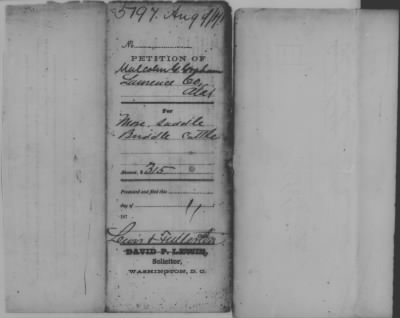 5797. Aug 9/71
No.
PETITION OF
Malcolm G. Graham
Lawrence Co,
Ala
For
Mare, saddle
Briddle Cattle
Amount, $ 315
Presented and filed this
day of
187
Lewis & Fullerton
DAVID P. LEWIS,
Solicitor,
WASHINGTON, D. C.